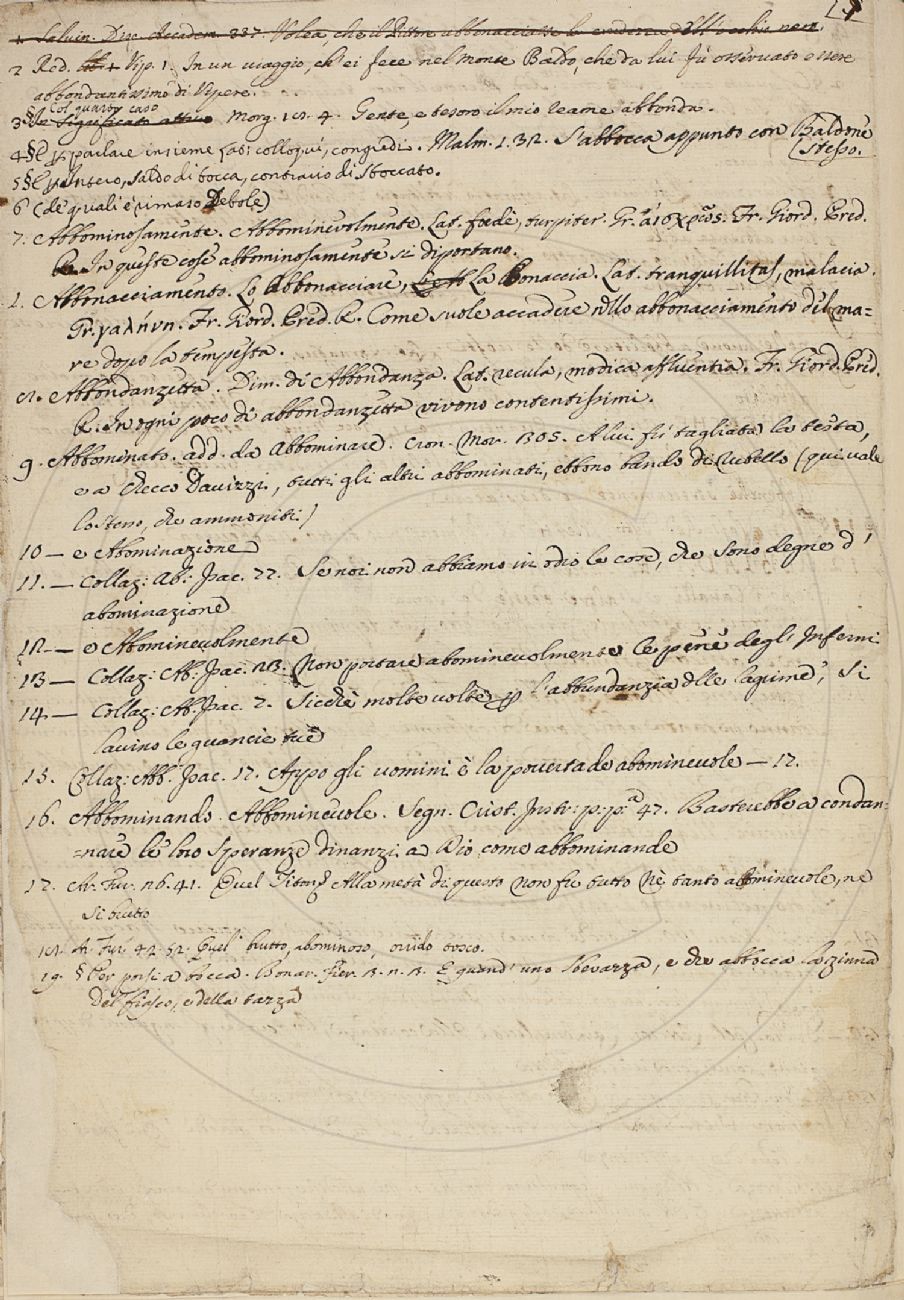 1. Salvin. Disc. Accadem. 337. Volea, che il Pittore abbonacciasse la crudezza dell'occhio nero.
2 Red. Vip. 1. In un viaggio, ch'ei fece nel Monte Baldo, che da lui fu osservato essere
abbondantissimo di Vipere.
Col quarto caso
3 § In Significato attivo Morg. 18. 4. Gente, e tesoro il mio reame abbonda.
4 § E p parlare insieme Lat: colloqui, congredi. Malm. 1. 32. S'abbocca appunto con Baldone
stesso.
5 § E p Intero, saldo di bocca, contrario di Sboccato.
6 (de' quali è rimaso Debole)
7. Abbominosamente. Abbominevolmente. Lat. foede, turpiter. Gr. αἰσχρῶς. Fr. Giord. Pred.
R. In queste cose abbominosamente si diportano.
8. Abbonacciamento. Lo Abbonacciare, La Bonaccia. Lat. tranquillitas, malacia.
Gr. γαλήνη. Fr. Giord. Pred. R. Come suole accadere nello abbonacciamento del ma=
re dopo la tempesta.
8. Abbondanzetta. Dim. di Abbondanza. Lat. recula, modica affluentia. Fr. Giord. Pred.
R. In ogni poco di abbondanzetta vivono contentissimi.
9. Abbominato. add. da Abbominare. Cron. Mor. 305. A lui fu tagliata la testa,
e a Checco Davizzi, tutti gli altri abbominati, ebbono bando di Rubello (qui vale
lo stesso, che ammoniti)
10 — e Abominazione
11. — Collaz: Ab: Isac. 22. Se noi non abbiamo in odio le cose, che sono degne d'
abominazione
12 — e Abominevolmente
13 — Collaz: Ab. Isac. 23. Non portare abominevolmente le pene degl' Infermi
14 — Collaz: Ab. Isac. 2. Sicchè molte volte p l'abbundanzia delle lagrime, si
lavino le guancie tue
15. Collaz: Abb. Isac. 17. Appo gli uomini è la povertade abominevole — 17.
16. Abbominando. Abbominevole. Segn. Crist. Instr: p: pa 47. Basterebbe a condan-
=nare le loro Speranze dinanzi a Dio come abbominande
17. Ar. Fur. 26. 41. Quel Fitone Alla metà di questo non fu tutto Nè tanto abominevole, nè
si brutto
18. Ar. Fur. 42. 52. Quel brutto, abominoso, orrido tosco.
19. § Per porsi a bocca. Bonar. Fier. 3. 2. 3. E quand' uno sbevazza, e che abbocca la zinna
Del fiasco, e della tazza